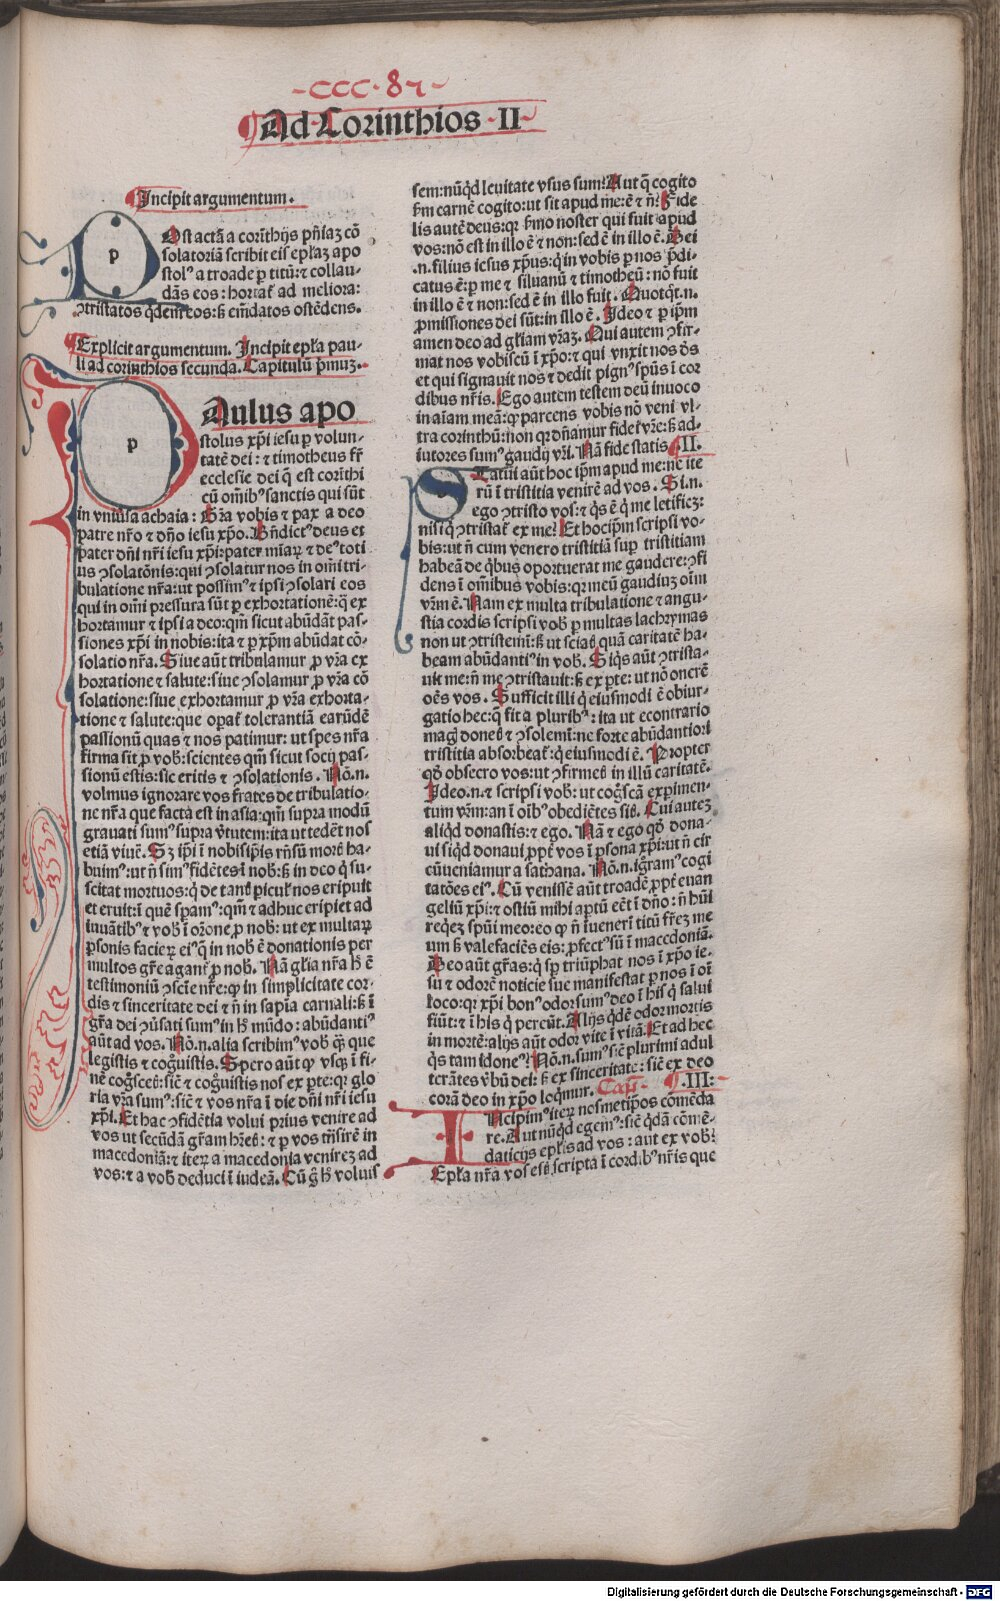 CCC·87
Ad Corinthios ·II·
Incipit argumentum.
Ost actã a corĩthijs pñiaꝫ cõ
p
solatoriã scribit eis epłaꝫ apo
stolꝰ a troade ꝑ titũ: ⁊ collau-
dãs eos: hortať ad meliora:
ꝯtristatos q̃dem eos: ß emẽdatos ostẽdens.
Explicit argumentum. Incipit epła pau-
li ad corinthios secunda. Capitulũ p̃muꝫ.
Aulus apo
p
stolus xp̃i iesu ꝑ volun-
tatẽ dei: ⁊ timotheus fr̃
ecclesie dei q̃ est corĩthi
cũ om̃ibꝰ sanctis qui sũt
in vniũsa achaia: Gr̃a vobis ⁊ pax a deo
patre nr̃o ⁊ dño iesu xp̃o. Bñdictꝰ deus et
pater dñi nr̃i iesu xp̃i: pater mĩaꝝ ⁊ deꝰ toti
us ꝯsolatõnis: qui ꝯsolatur nos in om̃i tri-
bulatione nr̃a: ut possimꝰ ⁊ ipsi ꝯsolari eos
qui in om̃i pressura sũt ꝑ exhortationẽ: q̃ ex
hortamur ⁊ ipsi a deo: qm̃ sicut abũdãt pas-
siones xp̃i in nobis: ita ⁊ ꝑ xp̃m abũdat cõ-
solatio nr̃a. Siue aũt tribulamur ꝓ vr̃a ex
hortatione ⁊ salute: siue ꝯsolamur ꝓ vr̃a cõ
solatione: siue exhortamur ꝓ vr̃a exhorta-
tione ⁊ salute: que opať tolerantiã earũdẽ
passionũ quas ⁊ nos patimur: ut spes nr̃a
firma sit ꝓ vob̃: scientes qm̃ sicut socij pas-
sionũ estis: sic eritis ⁊ ꝯsolationis. Nõ.n.
volmus ignorare vos fratres de tribulatio-
ne nr̃a que facta est in asia: qm̃ supra modũ
grauati sumꝰ supra v̓tutem: ita ut tedẽt nos
etiã viuẽ. Sꝫ ip̃i ĩ nobisip̃is rñsũ mortꝭ ha-
buimꝰ: ut ñ simꝰ fidẽtes ĩ nob̃: ß in deo q̃ su-
scitat mortuos: q̃ de tantꝭ ꝑicuľ nos eripuit
et eruit: ĩ quẽ sꝑamꝰ: qm̃ ⁊ adhuc eripiet ad
iuuãtibꝰ ⁊ vob̃ ĩ or̃one ꝓ nob̃: ut ex multaꝝ
ꝑsonis facieꝝ eiꝰ q̃ in nob̃ ẽ donationis per
multos gr̃e agantꝭ ꝓ nob̃. Nã gľia nr̃a h̃ ẽ
testimoniũ ꝯsciẽ nr̃e: ꝙ in simplicitate cor-
dis ⁊ sinceritate dei ⁊ ñ in sapiã carnali: ß ĩ
gr̃a dei ꝯ̃usati sumꝰ in h̃ mũdo: abũdantiꝰ
aũt ad vos. Nõ.n. alia scribimꝰ vob̃ q̃ꝫ que
legistis ⁊ cog̃uistis. Spero aũt ꝙ vsqꝫ ĩ fi-
nẽ cog̃scetꝭ: sic̃ ⁊ cog̃uistis nos ex ꝑte: qꝛ glo
ria vr̃a sumꝰ: sic̃ ⁊ vos nr̃a ĩ die dñi nr̃i iesu
xp̃i. Et hac ꝯfidẽtia volui prius venire ad
vos ut secũdã gr̃am hr̃etꝭ: ⁊ ꝑ vos tr̃sire in
macedoniã: ⁊ iterꝝ a macedonia venireꝫ ad
vos: ⁊ a vob̃ deduci ĩ iudeã. Cũ g̃ h̃ voluis
sem: nũq̃d leuitate vsus sum? Aut q̃ cogito
ẜm carnẽ cogito: ut sit apud me: ẽ ⁊ ñ? Fide
lis autẽ deus: qꝛ ẜmo noster qui fuit apud
vos: nõ est in illo ẽ ⁊ non: sed ẽ in illo ẽ. Dei
.n. filius iesus xp̃us: q̃ in vobis ꝑ nos p̃di-
catus ẽ: ꝑ me ⁊ siluanũ ⁊ timotheũ: nõ fuit
in illo ẽ ⁊ non: sed ẽ in illo fuit. Quotq̃t.n.
ꝓmissiones dei sũt: in illo ẽ. Ideo ⁊ ꝑ ip̃m
amen deo ad gľiam vr̃aꝫ. Qui autem ꝯfir-
mat nos vobiscũ ĩ xp̃o: ⁊ qui vnxit nos dẽs
et qui signauit nos ⁊ dedit pignꝰ spũs ĩ cor
dibus nr̃is. Ego autem testem deũ inuoco
in aĩam meã: ꝙ parcens vobis nõ veni vl-
tra corinthũ: non qꝛ dñamur fidei vr̃e: ß ad-
iutores sumꝰ gaudij vr̃i. Nã fide statis. II.
Tatui aũt hoc ip̃m apud me: ne ite
rũ ĩ tristitia venirẽ ad vos. Si.n.
ego ꝯtristo vos: ⁊ q̃s ẽ q̃ me letificꝫ:
nisi q̃ ꝯtristať ex me? Et hocip̃m scripsi vo-
bis: ut ñ cum venero tristitiã suꝑ tristitiam
habeã de q̃bus oportuerat me gaudere: ꝯfi
dens ĩ om̃ibus vobis: qꝛ meũ gaudiuꝫ oĩm
vr̃m ẽ. Nam ex multa tribulatione ⁊ angu-
stia cordis scripsi vob̃ ꝑ multas lachrymas
non ut ꝯtristemĩ: ß ut sciatꝭ quã caritatẽ ha-
beam abũdantiꝰ in vob̃. Siq̃s aũt ꝯtrista-
uit me: ñ me ꝯtristauit: ß ex ꝑte: ut nõ onerẽ
oẽs vos. Sufficit illi q̃ eiusmodi ẽ obiur-
gatio hec: q̃ fit a pluribꝰ: ita ut econtrario
mag̃ donetꝭ ⁊ ꝯsolemĩ: ne forte abũdantiori
tristitia absorbeať q̃ eiusmodi ẽ. Propter
qđ obsecro vos: ut ꝯfirmetꝭ in illũ caritatẽ.
Ideo.n. ⁊ scripsi vob̃: ut cog̃scã experimen-
tum vr̃m: an ĩ oĩbꝰ obediẽtes sitꝭ. Cui auteꝫ
aliq̃d donastis: ⁊ ego. Nã ⁊ ego qđ dona-
ui siq̃d donaui ꝓpt̃ vos ĩ ꝑsona xp̃i: ut ñ cir
cũueniamur a sathana. Nõ.n. ig̃ramꝰ cogi
tatões eiꝰ. Cũ venissẽ aũt troadẽ ꝓpt̃ euan
geliũ xp̃i: ⁊ ostiũ mihi aꝑtũ eẽt ĩ dño: ñ hũi
reqẽꝫ spũi meo: eo ꝙ ñ ĩuenerĩ titũ fr̃eꝫ me
um ß valefaciẽs eis: ꝓfectꝰ sũ ĩ macedoniã.
Deo aũt gr̃as: q̃ sꝑ triũphat nos ĩ xp̃o ie-
su ⁊ odorẽ noticie sue manifestat ꝑ nos ĩ oĩ
loco: qꝛ xp̃i bonꝰ odor sumꝰ deo ĩ his q̃ salui
fiũt: ⁊ ĩ his q̃ pereũt. Alijs q̃dẽ odor mortis
in mortẽ: alijs aũt odor vite ĩ vitã. Et ad hec
q̃s tam idoneꝰ? Nõ.n. sumꝰ sic̃ plurimi adul
terãtes v̓bũ dei: ß ex sinceritate: sic̃ ex deo
corã deo in xp̃o loq̃mur. Cap̃ III:
Ncipimꝰ iterꝝ nosmetip̃os cõmẽda
re. Aut nũq̃d egemꝰ: sic̃ q̃dã cõmẽ-
daticijs epłis ad vos: aut ex vob̃?
Epła nr̃a vos estꝭ scripta ĩ cordibꝰ nr̃is que
Digitalisierung gefördert durch die Deutsche Forschungsgemeinschaft - DFG